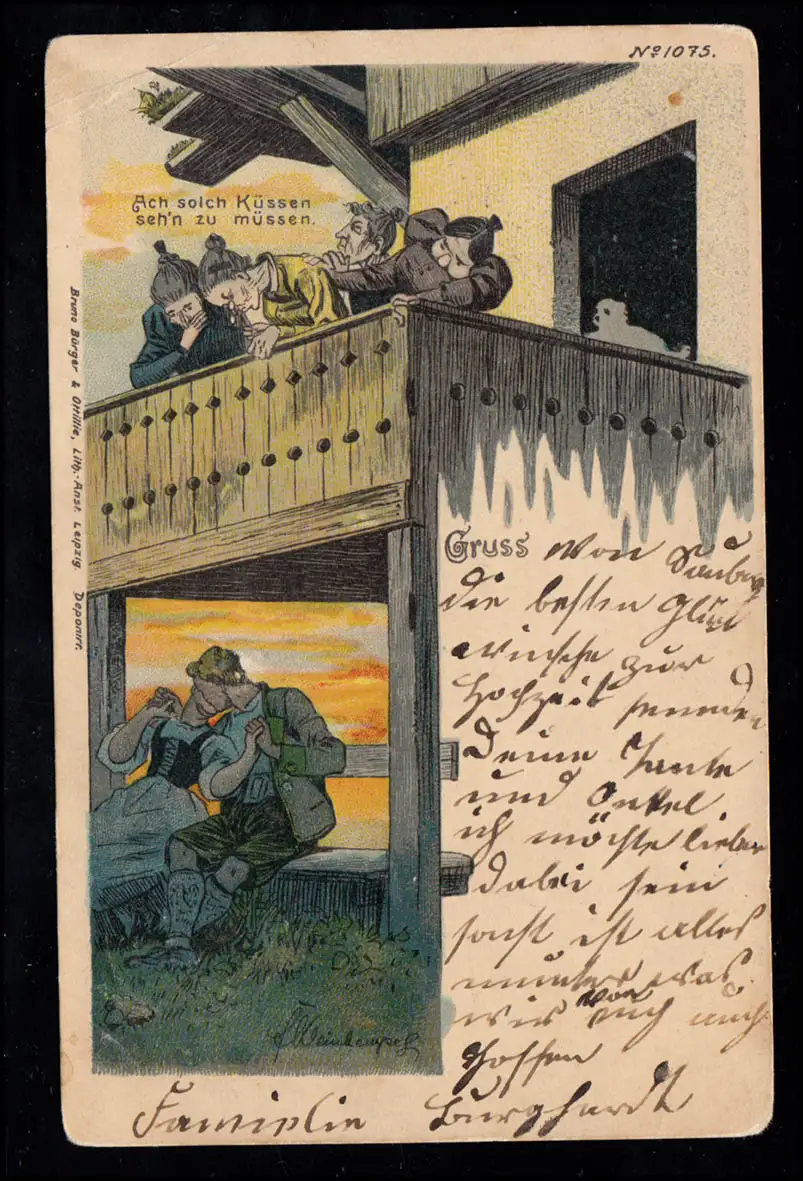 No 1075.
Ach solch Küssen
seh'n zu müssen.
Bruno Bürger & Ottillie, Lith.-Anst. Leipzig. Deponirt.
Gruss von
die besten Glück
wünsche zur
Hochzeit senden
Deine Tante
und Onkel
ich möchte lieber
dabei sein
sonst ist alles
munter was
wir von euch auch
hoffen
Famielie Burghardt